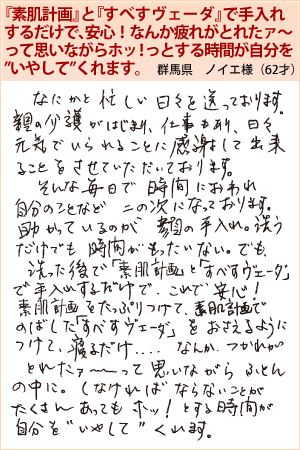 『素肌計画』と『すべすべヴェーダ』で手入れ
するだけで、安心！なんか疲れがとれたァ～
って思いながらホッ！っとする時間が自分を
”いやして”くれます。 群馬県 ノイエ様（62才）
なにかと忙しい日々を送っております。
親の介護がはじまり、仕事もあり、日々、
元気でいられることに感謝して出来
ることをさせていただいております。
そんな毎日で時間におわれ
自分のことなど二の次になっております。
助かっているのが顔の手入れ。洗う
だけでも時間がもったいない。でも、
洗った後で「素肌計画」と「すべすべヴェーダ」
で手入れするだけで、これで安心！
素肌計画をたっぷりつけて、素肌計画で
のばした「すべすべヴェーダ」をおさえるように
つけて、寝るだけ.... なんか、つかれが
とれたァ～～って思いながらふとん
の中に。しなければならないことが
たくさんあってもホッ！とする時間が
自分を“いやして”くれます。